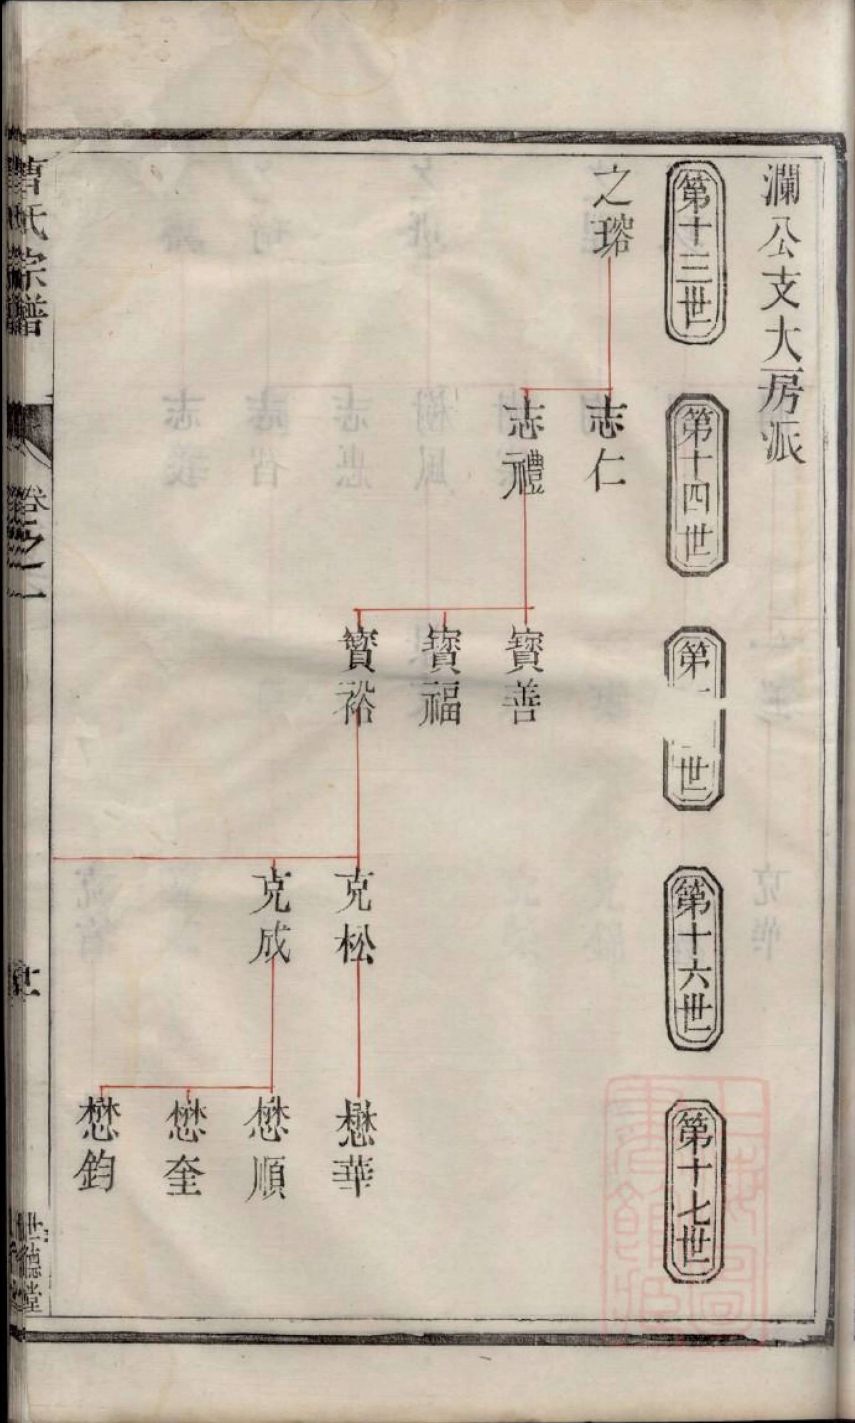 瀾公支大房派
第十三世
第十四世
第 世
第十六世
第十七世
之瑢
志仁
志禮
寶善
寶福
寶裕
克松
克成
懋華
懋順
懋奎
懋鈞
曹氏宗譜
卷之一
世德堂